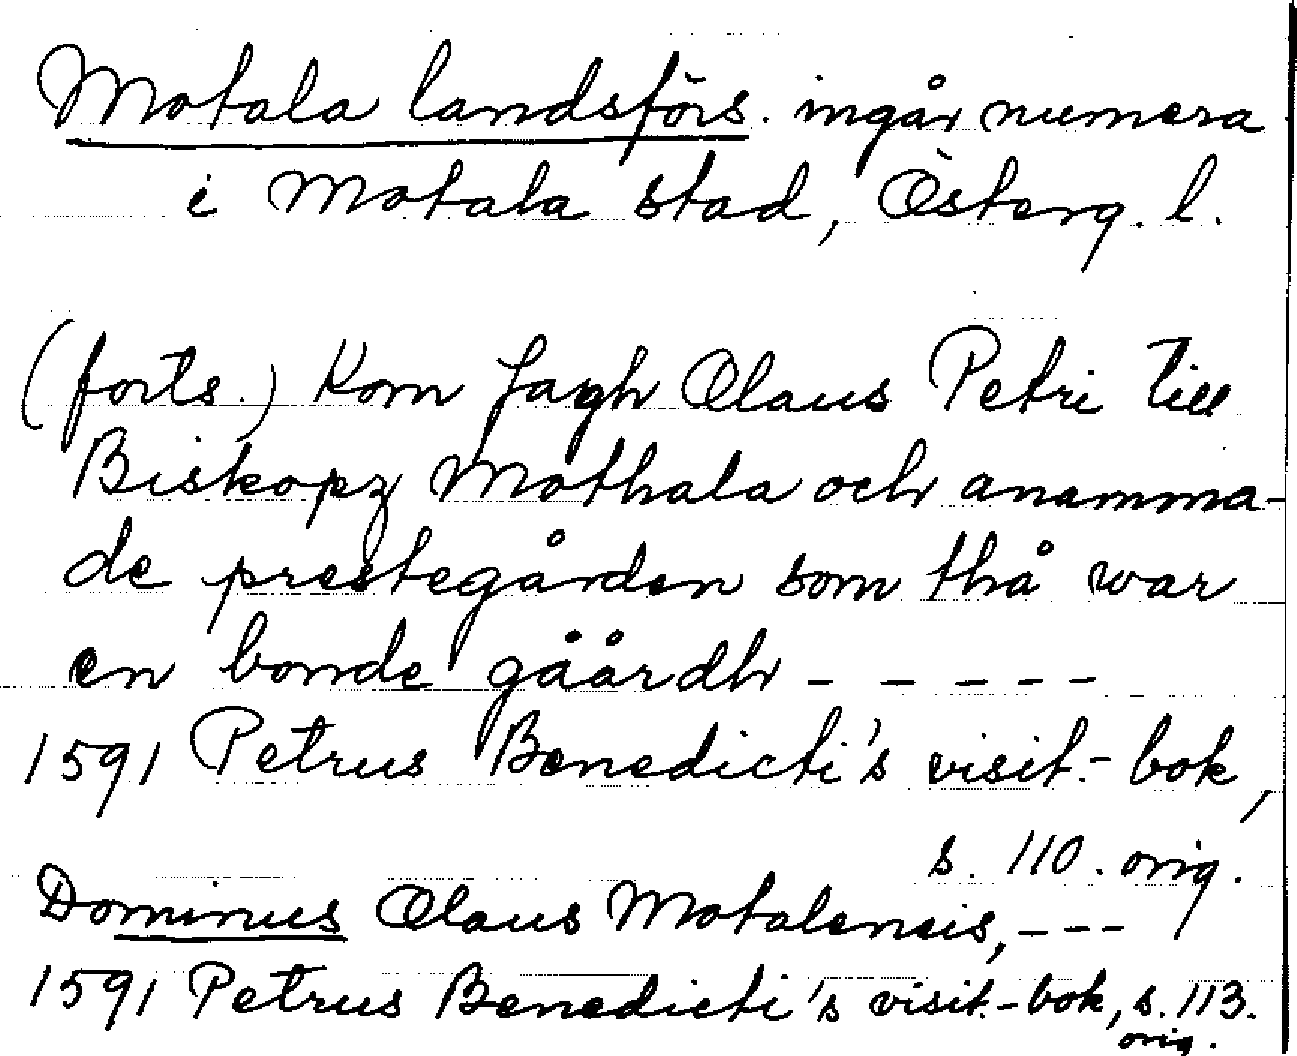 Motala landsförs. ingår numera
i Motala stad, Österg. l.
(forts.) Kom Jagh Olaus Petri till
Biskopz Mothala och anamma-
de prestegården som thå war
en bonde gåårdh - - - - -
1591 Petrus Benedicti's visit.-bok,
s. 110. orig.
Dominus Olaus Motalensis, - - -
1591 Petrus Benedicti's visit.-bok, s. 113.
orig.